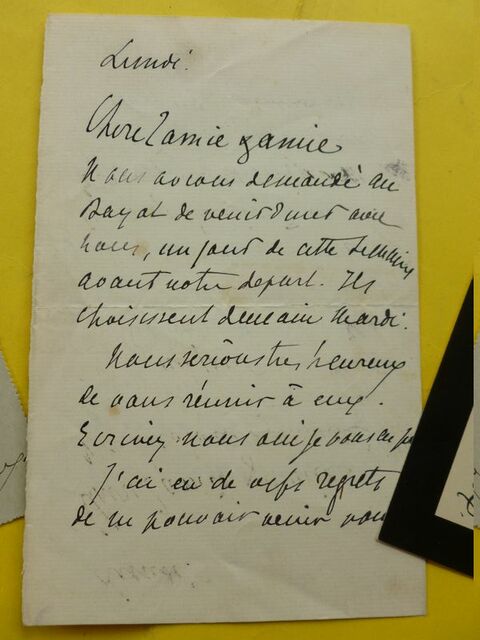 Lundi.
Chere Zamie zamie
Nous avons demandé au
Bayot de venir diner avec
nous, un jour de cette semaine
avant notre depart. Ils
choisissent demain Mardi.
Nous serions tres heureux
de vous réunir à eux.
Ecrivez nous oui je vous en
J'ai eu de vifs regrets
de ne pouvoir venir vous